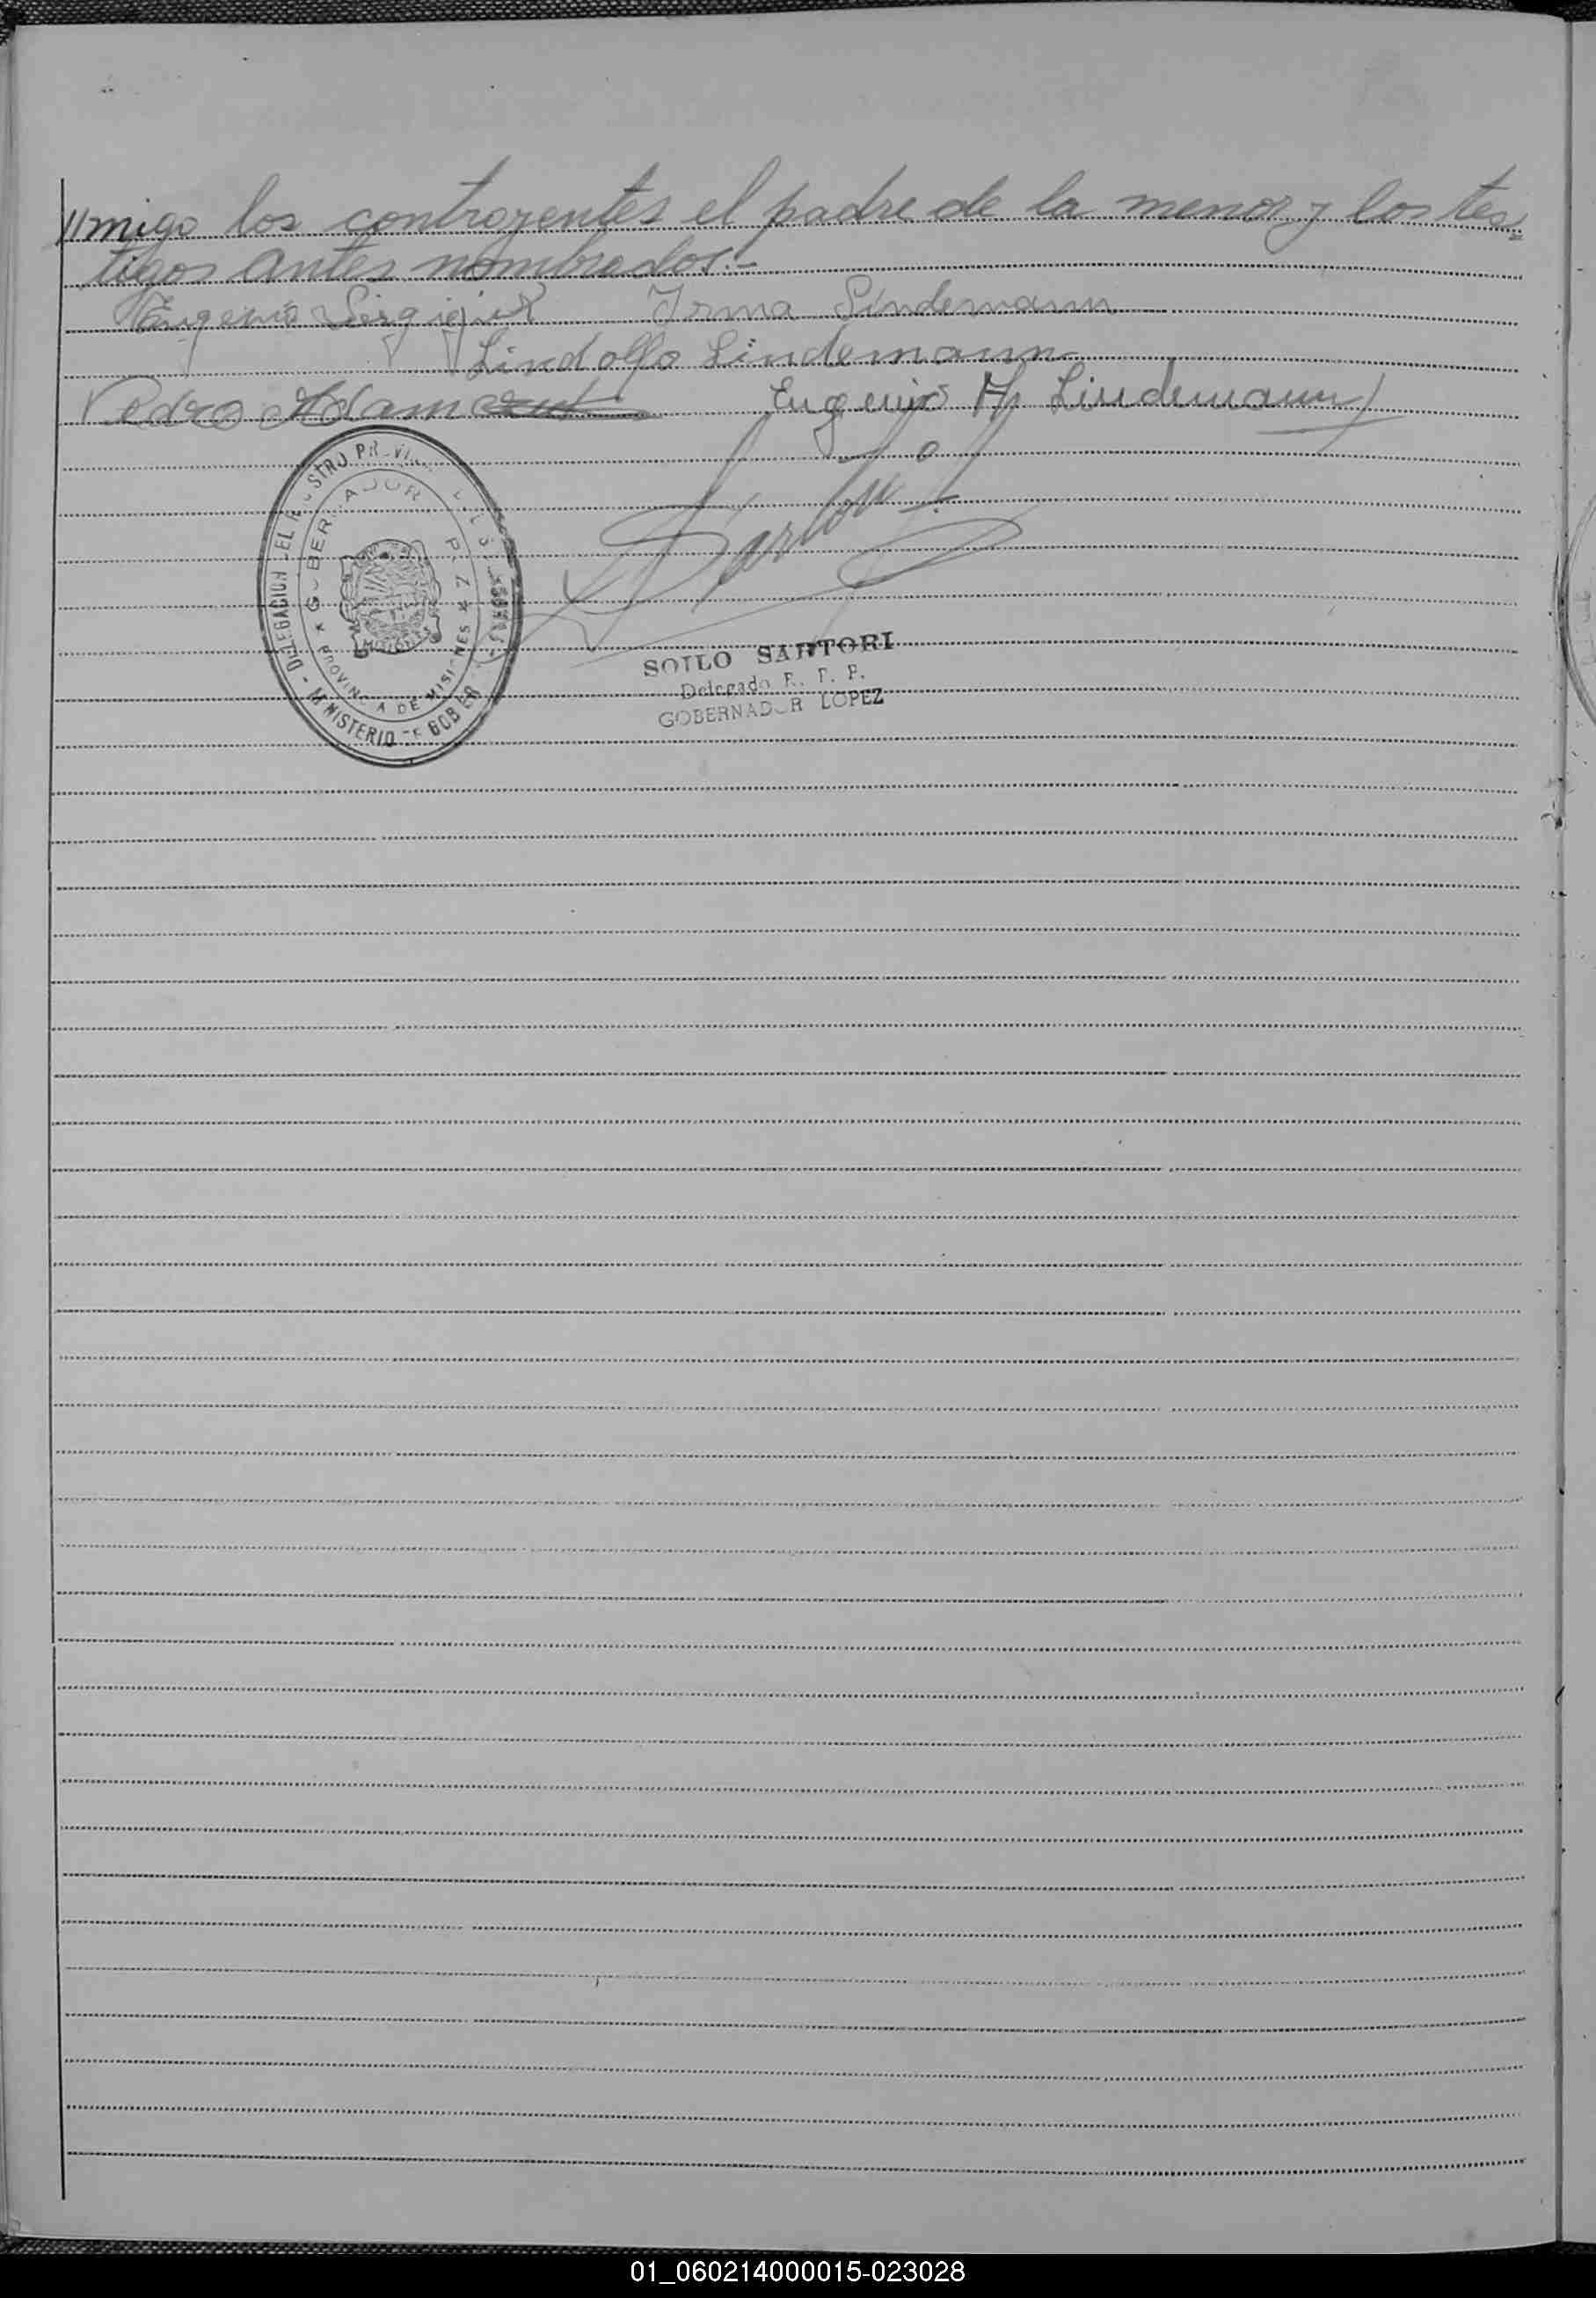 //migo los contrayentes el padre de la menor y los tes=
tigos antes nombrados.-
Eugenio Irma Lindemann
Lindolfo Lindemann
Pedro Eugenio Lindemann
SOILO SARTORI
Delegado R. P. P.
GOBERNADOR LOPEZ
DELEGACION DEL REGISTRO PROVINCIAL DE LAS PERSONAS
MINISTERIO DE GOBIERNO
GOBERNADOR LOPEZ
PROVINCIA DE MISIONES
01_060214000015-023028